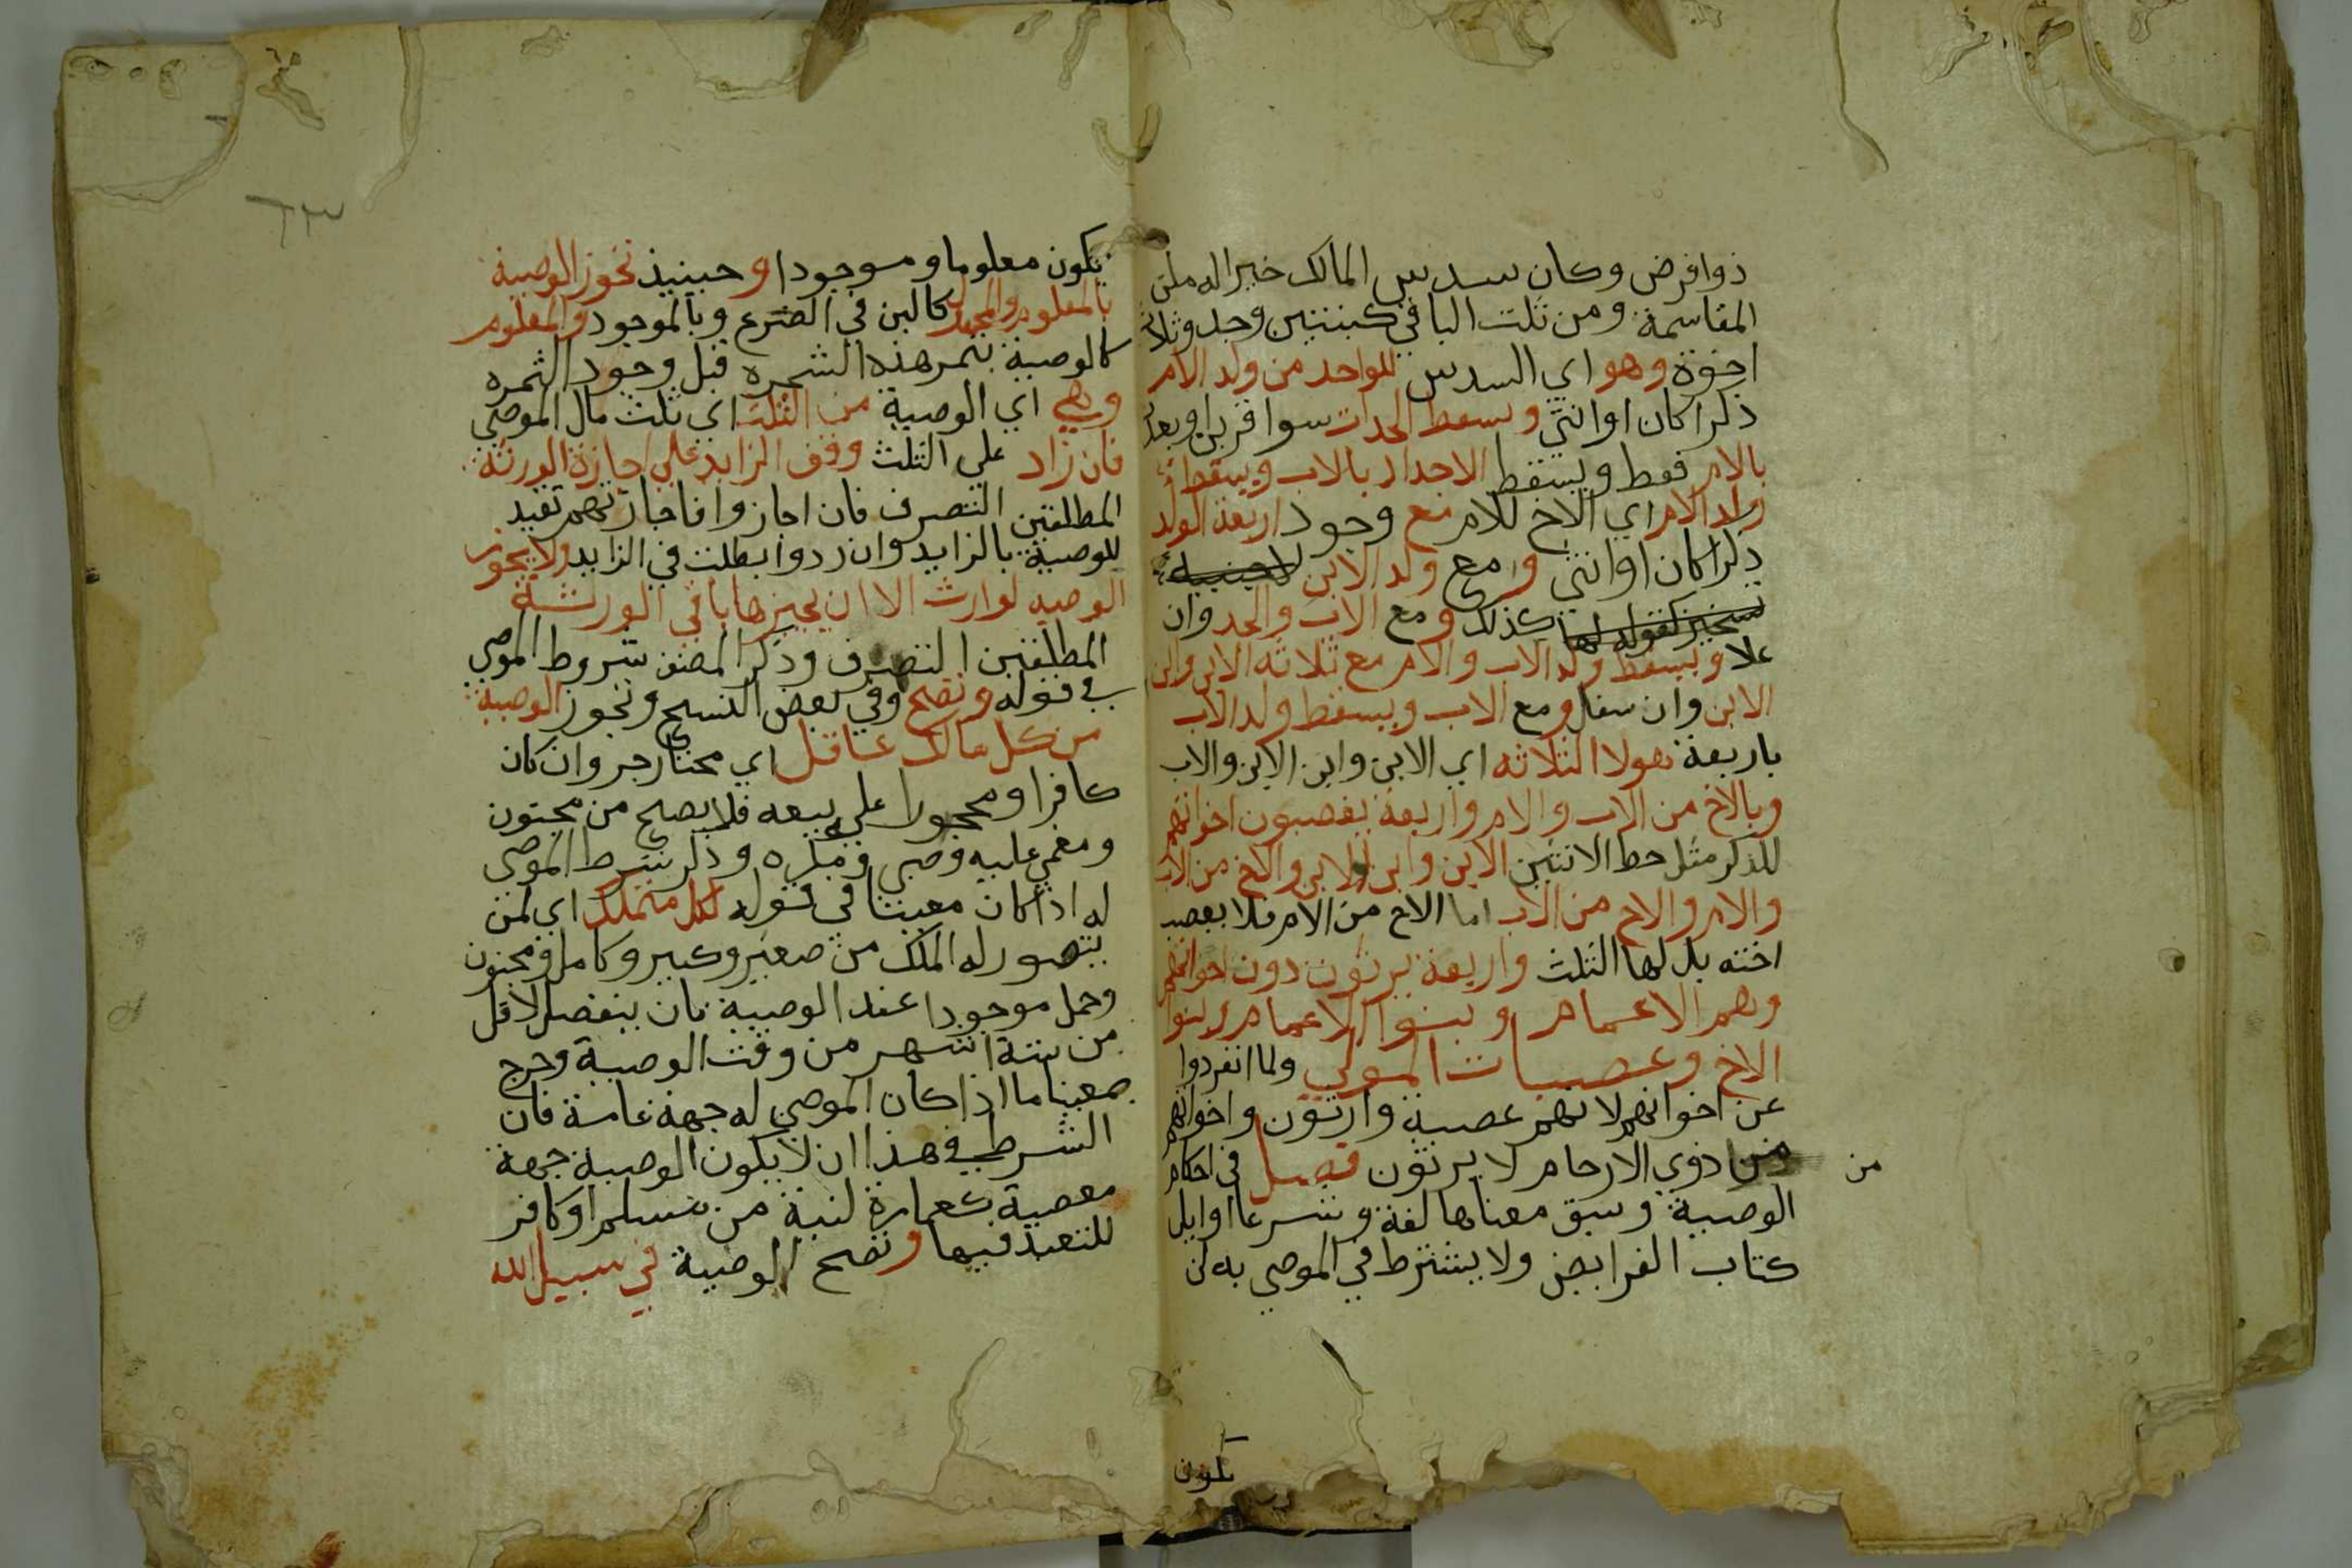 ذوا فرض وكان سدس المالك خيرا له من
المقاسمة ومن ثلث الباقي كبنتين وجد وثلاثة
اخوة وهو اي السدس للواحد من ولد الام
ذكرا كان او انثي وتسقط الجدات سوا قربن او بعدن
بالام فقط ويسقط الاجداد بالاب ويسقط
ولد الام اي الاخ للام مع وجود اربعة الولد
ذكرا كان او انثي ومع ولد الابن
كذلك ومع الاب والجد وان
علا ويسقط ولد الاب والام مع ثلاثه الابن وابن
الابن وان سفل ومع الاب ويسقط ولد الاب
باربعة بهولا الثلاثه اي الابن وابن الابن والاب
وبالاخ من الاب والام واربعة يعصبون اخواتهم
للذكر مثل حظ الانثيين الابن وابن الابن والاخ من الاب
والام والاخ من الاب اما الاخ من الام فلا يعصب
اخته بل لها الثلث واربعة يرثون دون اخواتهم
وهم الاعمام وبنوا الاعمام وبنوا
الاخ وعصبات المولي ولما انفردوا
عن اخواتهم لانهم عصبة وارثون واخواتهم
من ذوي الارحام لا يرثون فصل في احكام
من
الوصية وسبق معناها لغة وشرعا اوايل
كتاب الفرايض ولا يشترط في الموصي به ان
يكون
٦٣
يكون معلوما وموجودا وحينيذ تجوز الوصية
بالمعلوم والمجهول كالبن في الضرع وبالموجود والمعدوم
كالوصية بثمر هذه الشجره قبل وجود الثمره
وهي اي الوصية من الثلث اي ثلث مال الموصي
فان زاد علي الثلث وقف الزايد علي اجازة الورثة
المطلقين التصرف فان اجازوا فاجازتهم تنفيذ
للوصية بالزايد وان ردوا بطلت في الزايد ولا تجوز
الوصيه لوارث الا ان يجيزها باقي الورثة
المطلقين التصرف وذكر المصنف شروط الموصي
في قوله وتصح وفي بعض النسخ وتجوز الوصية
من كل مالك عاقل اي مختار حر وان كان
كافرا او محجورا عليه بسفه فلا يصح من مجنون
ومغمي عليه وصبي ومكره وذكر شرط الموصي
له اذا كان معينا في قوله لكل متملك اي لمن
يتصور له الملك من صغير وكبير وكامل ومجنون
وحمل موجودا عند الوصية فان ينفصل لاقل
من ستة اشهر من وقت الوصية وخرج
معينا ما اذا كان الموصي له جهة عامة فان
الشرط في هذا ان لا يكون الوصية جهة
معصية كعمارة كنيسة من مسلم او كافر
للتعبد فيها وتصح الوصية في سبيل الله